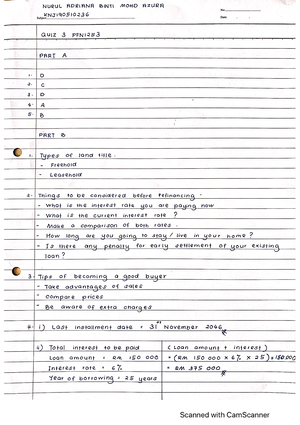 NURUL ADRIANA BINTI MOHD AZURA
KNJ190510236
QUIZ 3 PFN1253
PART A
1. D
2. C
3. D
4. A
5. B
PART B
1. Types of land title.
- Freehold
- Leasehold
2. Things to be considered before refinancing.
- What is the interest rate you are paying now
- What is the current interest rate ?
- Make a comparison of both rates.
- How long are you going to stay / live in your home ?
- Is there any penalty for early settlement of your existing
loan ?
3. Tips of becoming a good buyer
- Take advantages of sales
- Compare prices
- Be aware of extra charges
4. i) Last installment date = 31st November 2046
ii) Total interest to be paid (Loan amount + interest)
Loan amount = RM 150 000 = (RM 150 000 x 6% x 25) + 150 000
Interest rate = 6% = RM 375 000
Year of borrowing = 25 years
Scanned with CamScanner